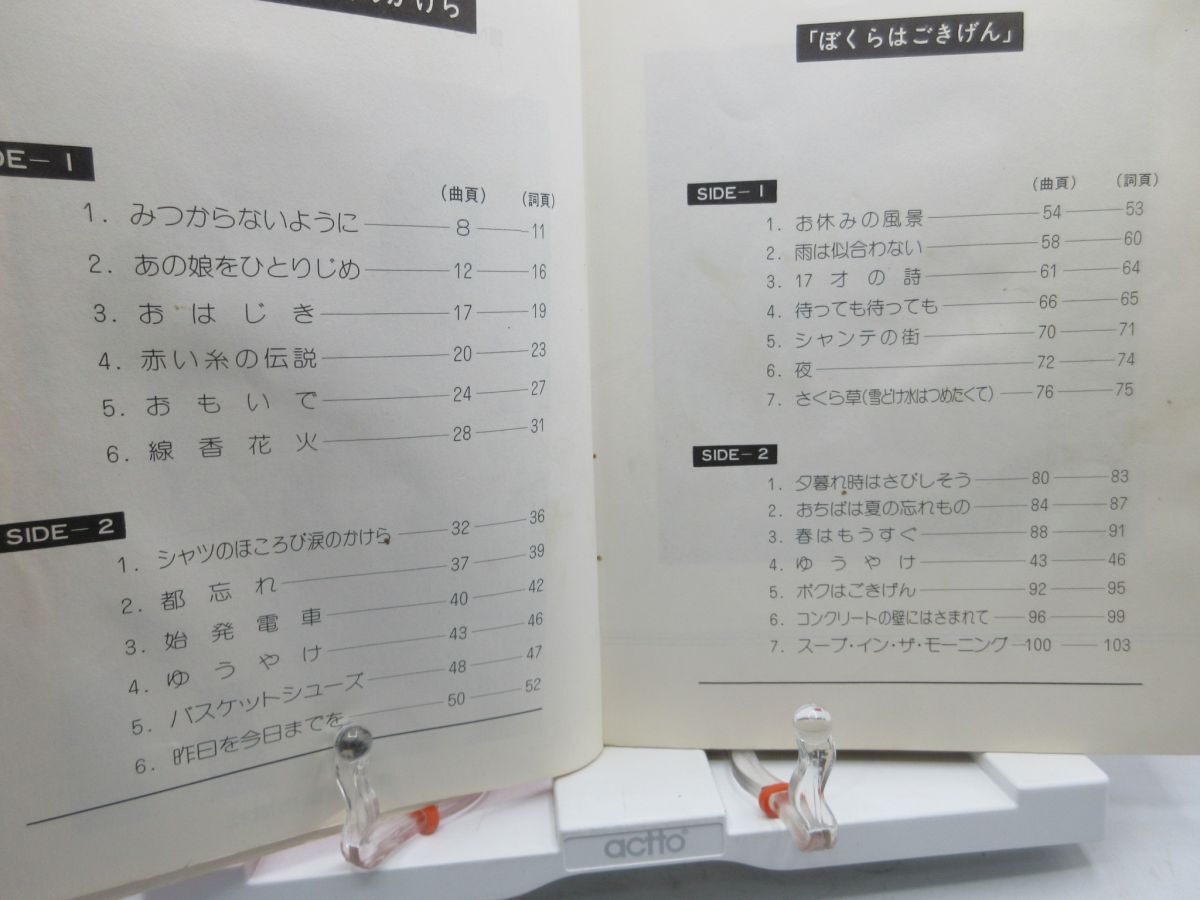 のかけら
DE-1
(曲頁) (詞頁)
1. みつからないように 8 11
2. あの娘をひとりじめ 12 16
3. おはじき 17 19
4. 赤い糸の伝説 20 23
5. おもいで 24 27
6. 線香花火 28 31
SIDE-2
1. シャツのほころび涙のかけら 32 36
2. 都忘れ 37 39
3. 始発電車 40 42
4. ゆうやけ 43 46
5. バスケットシューズ 48 47
6. 昨日を今日までを 50 52
「ぼくらはごきげん」
SIDE-1
(曲頁) (詞頁)
1. お休みの風景 54 53
2. 雨は似合わない 58 60
3. 17才の詩 61 64
4. 待っても待っても 66 65
5. シャンテの街 70 71
6. 夜 72 74
7. さくら草(雪どけ水はつめたくて) 76 75
SIDE-2
1. 夕暮れ時はさびしそう 80 83
2. おちばは夏の忘れもの 84 87
3. 春はもうすぐ 88 91
4. ゆうやけ 43 46
5. ボクはごきげん 92 95
6. コンクリートの壁にはさまれて 96 99
7. スープ・イン・ザ・モーニング 100 103
actto